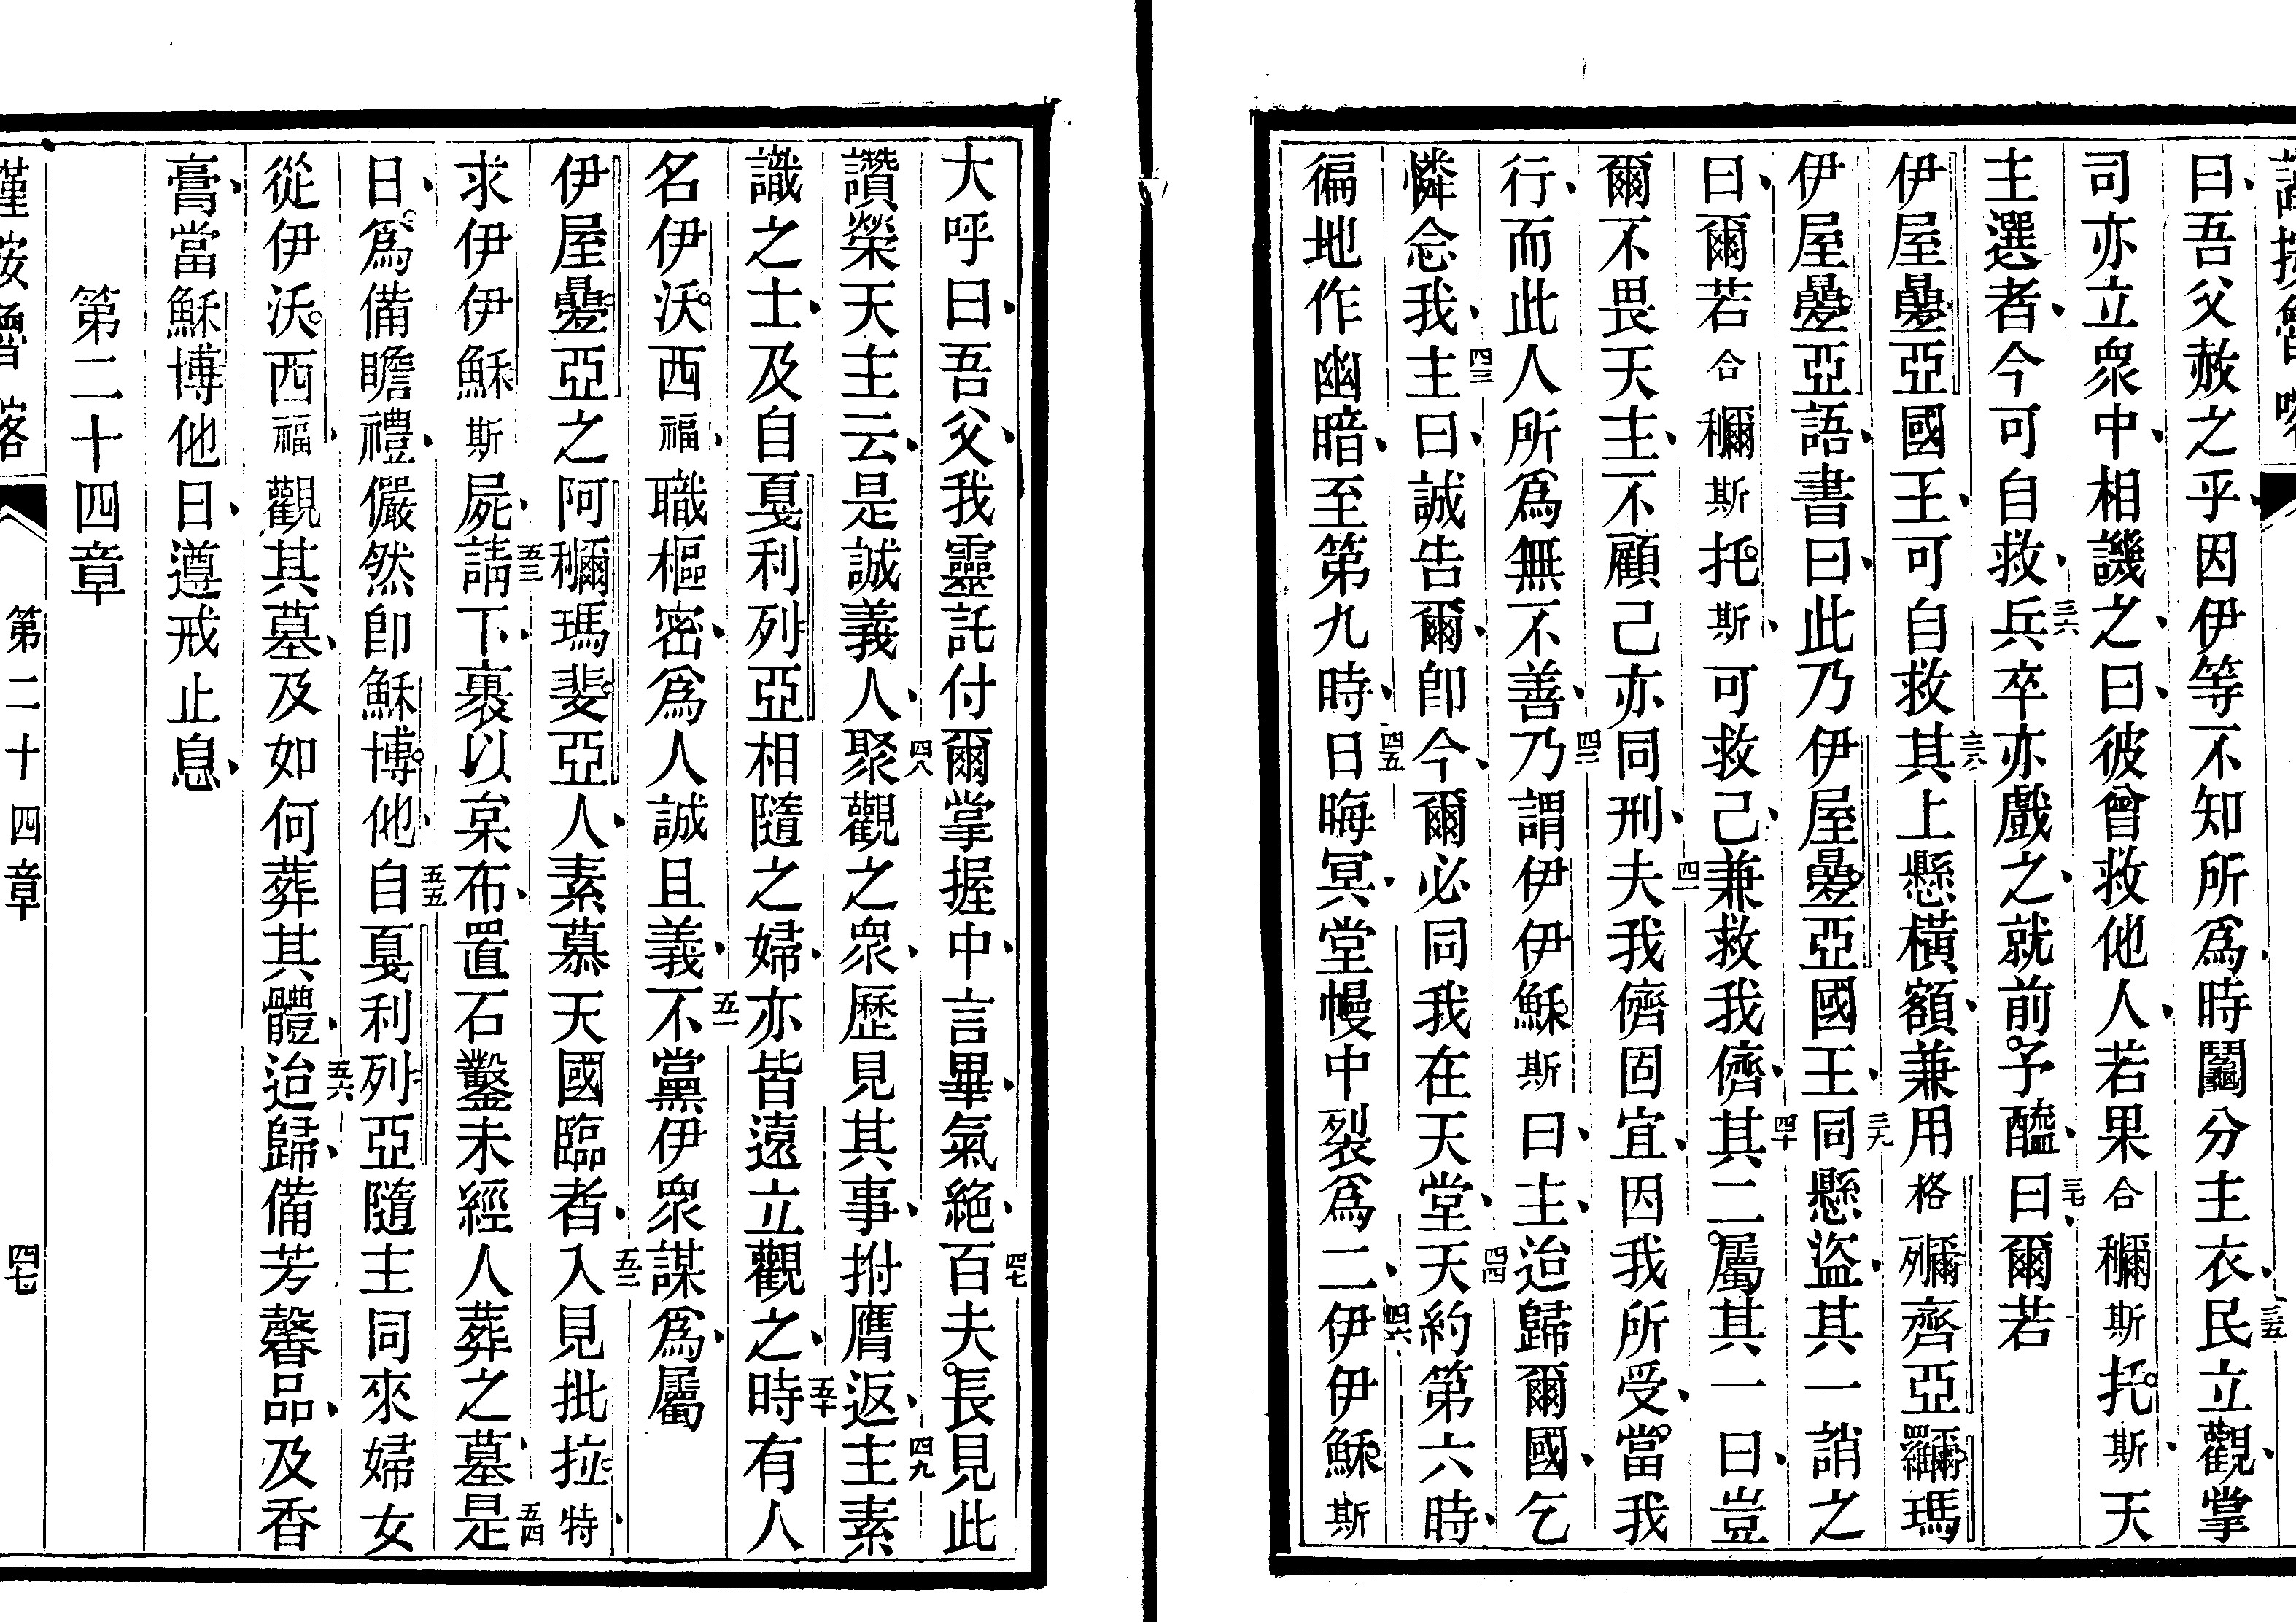 曰吾父赦之乎因伊等不知所爲時鬮分主衣三五民立觀掌
司亦立眾中相譏之曰彼曾救他人若果合穪斯托斯天
主選者今可自救三六兵卒亦戲之就前予醯三七曰爾若
伊屋疊亞國王可自救三八其上懸橫額兼用格𤃩齊亞羅穪瑪
伊屋疊亞語書曰此乃伊屋疊亞國王三九同懸盜其一誚之
曰爾若合穪斯托斯可救己兼救我儕四十其二屬其一曰豈
爾不畏天主不顧己亦同刑四一夫我儕固宜因我所受當我
行而此人所爲無不善四二乃謂伊伊穌斯曰主迨歸爾國乞
憐念我四三主曰誠告爾卽今爾必同我在天堂四四天約第六時
徧地作幽暗至第九時四五日晦冥堂幔中裂爲二四六伊伊穌斯
大呼曰吾父我靈託付爾掌握中言畢氣絶四七百夫長見此
讚榮天主云是誠義人四八聚觀之眾歷見其事拊膺返四九主素
識之士及自戛利列亞相隨之婦亦皆遠立觀之五十時有人
名伊沃西福職樞密爲人誠且義五一不黨伊眾謀爲屬
伊屋疊亞之阿穪瑪斐亞人素慕天國臨者五二入見批拉特
求伊伊穌斯屍五三請下裹以枲布置石鑿未經人葬之墓五四是
日爲備瞻禮儼然卽穌博他五五自戛利列亞隨主同來婦女
從伊沃西福觀其墓及如何葬其體五六迨歸備芳馨品及香
膏當穌博他日遵戒止息
第二十四章
第二十四章 四七